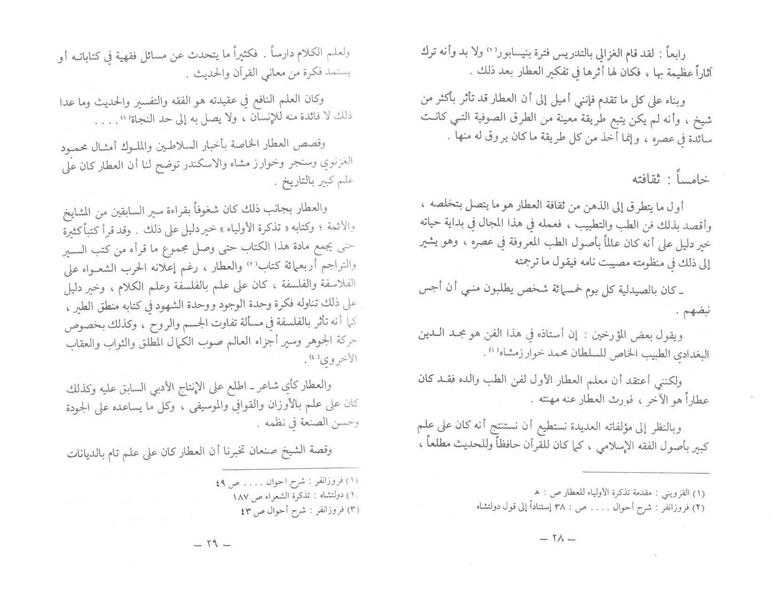 رابعاً : لقد قام الغزالي بالتدريس فترة بنيسابور(١) ولا بد وأنه ترك
آثاراً عظيمة بها ، فكان لها أثرها في تفكير العطار بعد ذلك .
وبناء على كل ما تقدم فإنني أميل إلى أن العطار قد تأثر بأكثر من
شيخ ، وأنه لم يكن يتبع طريقة معينة من الطرق الصوفية التي كانت
سائدة في عصره ، وإنما أخذ من كل طريقة ما كان يروق له منها .
خامساً : ثقافته
أول ما يتطرق إلى الذهن من ثقافة العطار هو ما يتصل بتخلصه ،
وأقصد بذلك فن الطب والتطبيب ، فعمله في هذا المجال في بداية حياته
خير دليل على أنه كان عالماً بأصول الطب المعروفة في عصره ، وهو يشير
إلى ذلك في منظومته مصيبت نامه فيقول ما ترجمته
ـ كان بالصيدلية كل يوم خمسمائة شخص يطلبون مني أن أجس
نبضهم .
ويقول بعض المؤرخين : إن أستاذه في هذا الفن هو مجد الدين
البغدادي الطبيب الخاص للسلطان محمد خوارزمشاه(٢) .
ولكنني أعتقد أن معلم العطار الأول لفن الطب والده فقد كان
عطاراً هو الآخر ، فورث العطار عنه مهنته .
وبالنظر إلى مؤلفاته العديدة نستطيع أن نستنتج أنه كان على علم
كبير بأصول الفقه الإسلامي ، كما كان للقرآن حافظاً وللحديث مطلعاً ،
(١) القزويني : مقدمة تذكرة الأولياء للعطار ص : هـ
(٢) فروزانفر : شرح أحوال .... ص : ٣٨ إستناداً إلى قول دولتشاه
ـ ٢٨ ـ
ولعلم الكلام دارساً . فكثيراً ما يتحدث عن مسائل فقهية في كتاباته أو
يستمد فكرة من معاني القرآن والحديث .
وكان العلم النافع في عقيدته هو الفقه والتفسير والحديث وما عدا
ذلك لا فائدة منه للإنسان ، ولا يصل به إلى حد النجاة(١) ....
وقصص العطار الخاصة بأخبار السلاطين والملوك أمثال محمود
الغزنوي وسنجر وخوارز مشاه والاسكندر توضح لنا أن العطار كان على
علم كبير بالتاريخ .
والعطار بجانب ذلك كان شغوفاً بقراءة سير السابقين من المشايخ
والأئمة ؛ وكتابه « تذكرة الأولياء » خير دليل على ذلك . وقد قرأ كتباً كثيرة
حتى يجمع مادة هذا الكتاب حتى وصل مجموع ما قرأه من كتب السير
والتراجم أربعمائة كتاب(٢) والعطار ، رغم إعلانه الحرب الشعواء على
الفلاسفة والفلسفة ، كان على علم بالفلسفة وعلم الكلام ، وخير دليل
على ذلك تناوله فكرة وحدة الوجود ووحدة الشهود في كتابه منطق الطير ،
كما أنه تأثر بالفلسفة في مسألة تفاوت الجسم والروح ، وكذلك بخصوص
حركة الجوهر وسير أجزاء العالم صوب الكمال المطلق والثواب والعقاب
الأخروي .
والعطار كأي شاعر ـ اطلع على الإنتاج الأدبي السابق عليه وكذلك
كان على علم بالأوزان والقوافي والموسيقى ، وكل ما يساعده على الجودة
وحسن الصنعة في نظمه .
وقصة الشيخ صنعان تخبرنا أن العطار كان على علم تام بالديانات
(١) فروزانفر : شرح احوال .... ص ٤٩
١.) دولتشاه : تذكرة الشعراء ص ١٨٧
(٣) فروزانفر : شرح أحوال ص ٤٣
ـ ٢٩ ـ